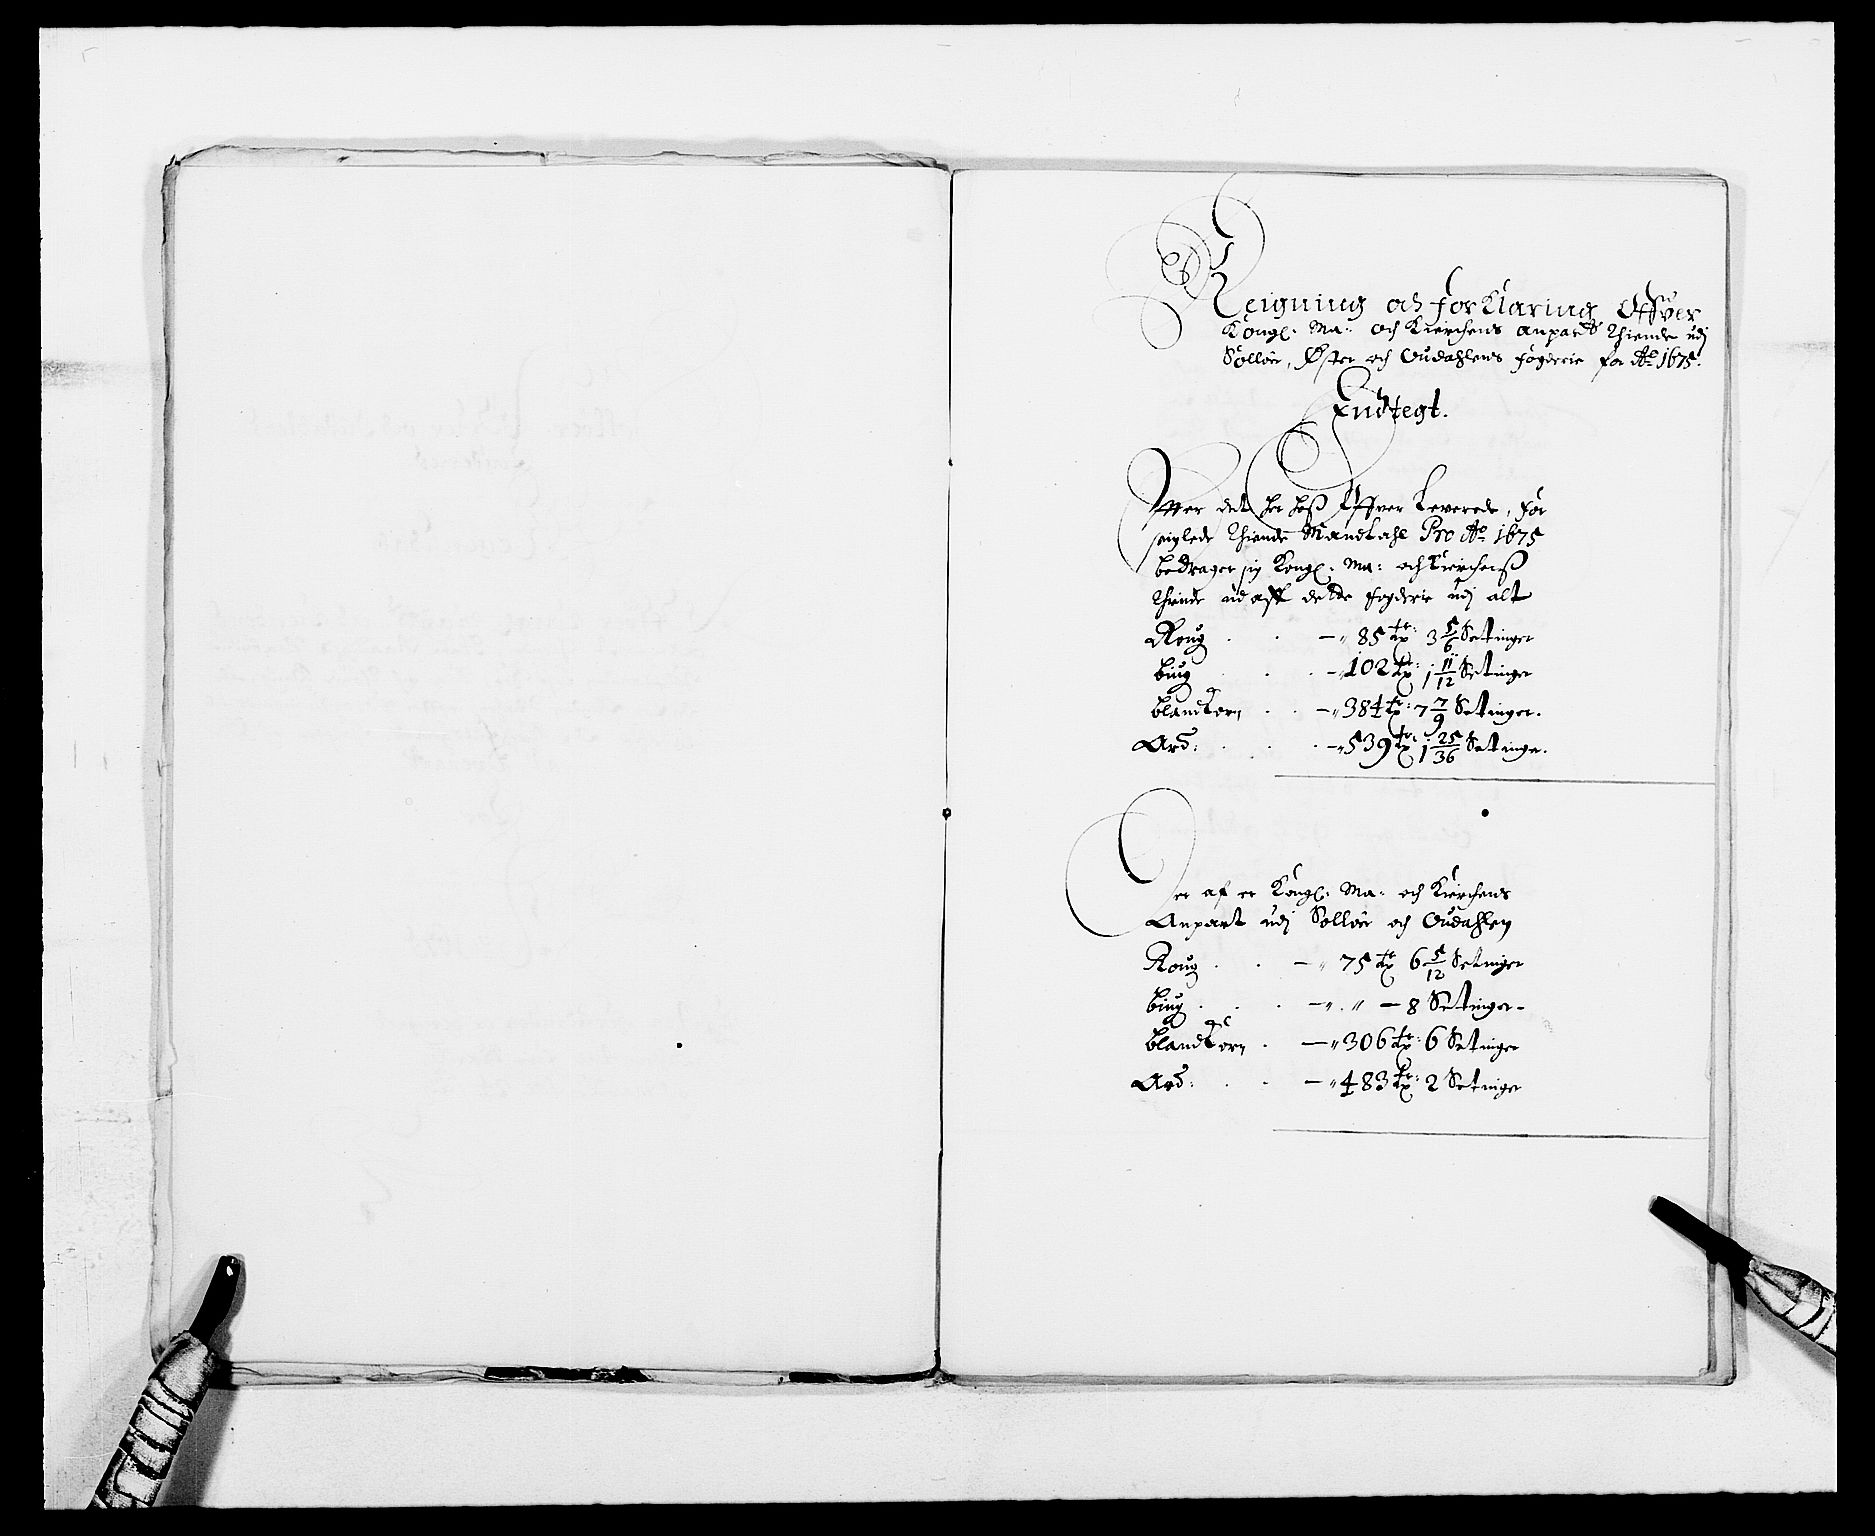 Reigning och forklaring Offver
Kongl: Ma: och Kierchens anpart Thiende udj
Solløer, Østen och Oudahlens fogderie for Ao 1675.
Indtegt.
Efter det her hoß Offver Leverede, for
seiglede Thiende Mandtahl Pro Ao 1675
bedrager sig Kongl: Ma: och Kierchenß
Thiende ud aff dette fogderie udj alt
Roug - " 85 tr: 3 5/6 Setinger
biug - " 102 tr: 1 11/12 Setinger
blandkorn - " 384 tr: 7 7/9 Setinger.
Ard: - " 539 tr: 1 25/36 Setinge.
Der af er Kongl: Ma: och Kierchens
Anpart udj Solløer och Oudahlen
Roug - " 75 tr 6 5/12 Setinger
biug - " . " - 8 Setinger -
blandkorn - " 306 tr: 6 Setinger
Ard: - " 483 tr: 2 Setinger